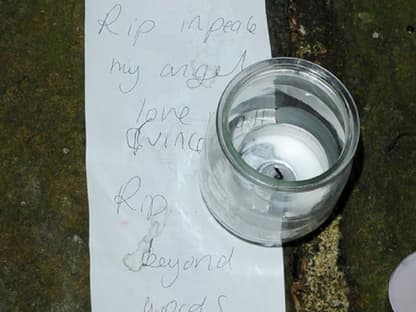 Rip inpeace
my angel
love
Rip
beyond
words